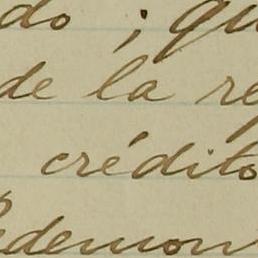 do ; qu
de la re
crédito
demon